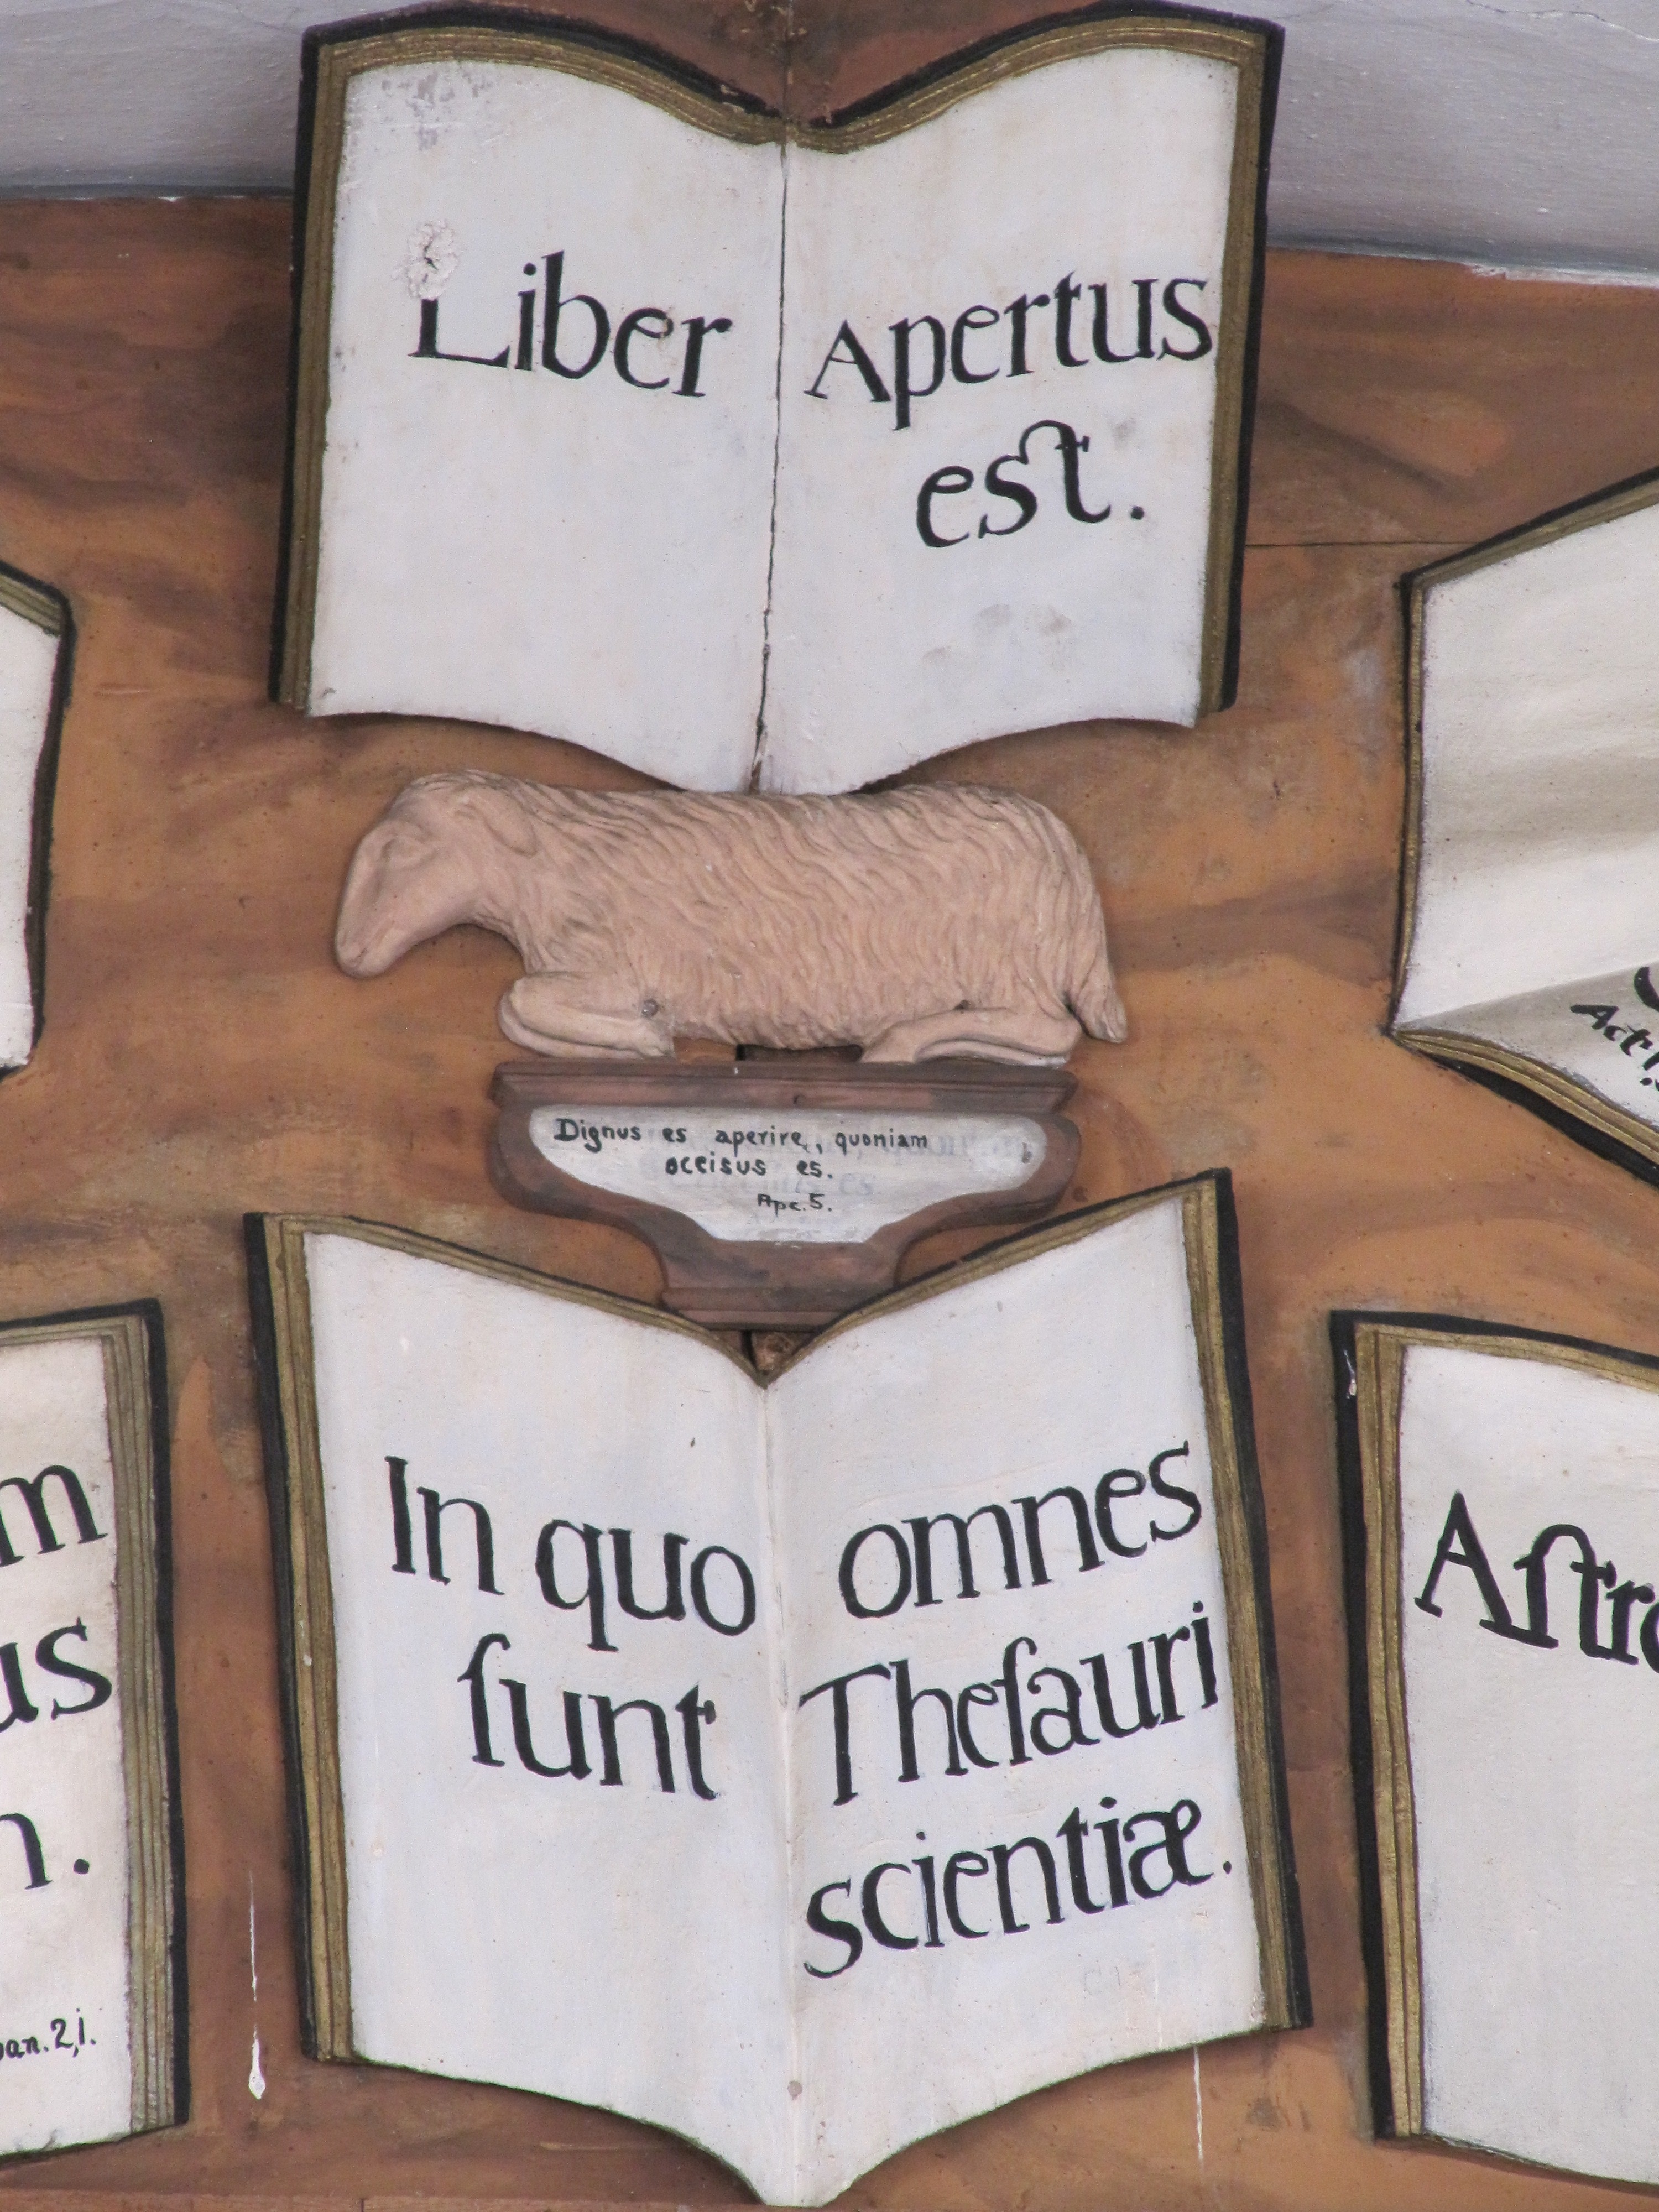 Liber Apertus
est.
Dignus es aperire, quoniam
occisus es.
Apc. 5.
In quo omnes
ſunt Theſauri
scientiæ.